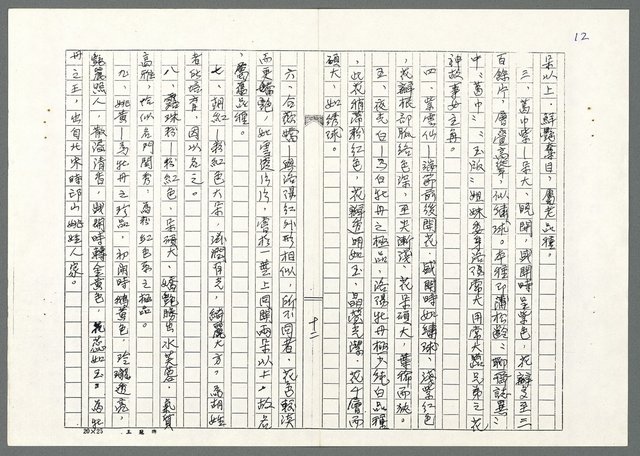 12
朵以上，鮮艷奪目，屬老品種。
三、葛巾紫—朵大，晚開，盛開時呈紫色，花瓣多至三
百餘片，層疊高聳，似繡球。本種即蒲松齡：聊齋誌異：
中：葛巾：：玉版：姐妹委身洛陽常大用常大器兄弟之花
神故事女主角。
四、紫雲仙—穀雨前後開花，盛開時如繡球，淺紫紅色
，花瓣根部脈絡色深，至尖漸淺，花朵碩大，葉稀而疏。
五、夜光白—為白牡丹之極品，洛陽牡丹極少純白品種
，此花稍帶粉紅色，花瓣透明如玉，晶瑩光潔，花千層而
碩大，如繡球。
十二
六、合歡嬌—與洛陽紅外形相似，所不同者，花色較淡
而更嬌艷，如雲霞片片，常於一莖上同開兩朵以上。故名
，屬舊品種。
七、胡紅—粉紅色大朵，滋潤有光，綺麗大方，為胡姓
者所培育，因以名之。
八、露珠粉—粉紅色，朵碩大，嬌艷勝出水芙蓉，氣質
高雅，恰似名門閨秀，為粉紅色系之極品。
九、姚黃—為牡丹之珍品，初開時鵝黃色，玲瓏透亮，
艷麗照人，散溢清香，盛開時轉金黃色，花蕊如玉。為牡
丹之王，出自北宋時邙山姚姓人家。
20×25